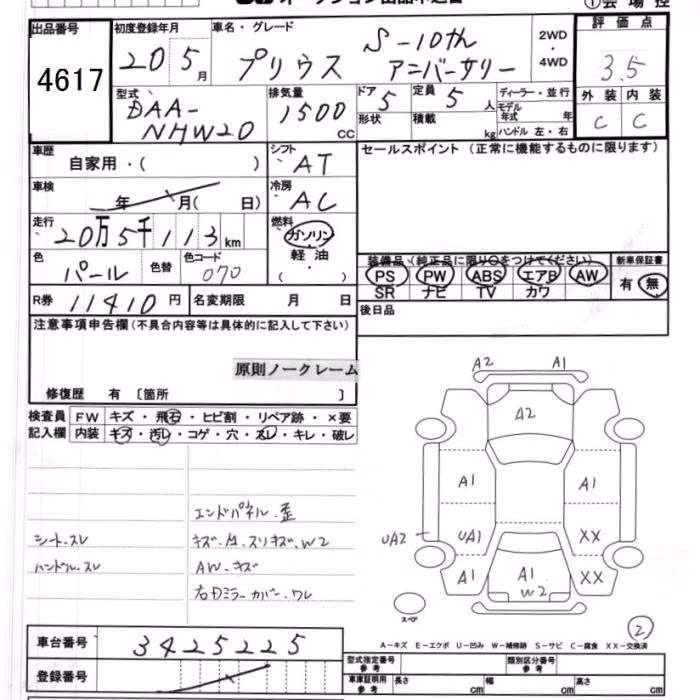 出品番号
4617
初度登録年月
20 5月
車名・グレード
プリウス S-10th アニバーサリー
2WD
・
4WD
評価点
3.5
型式
DAA-
NHW20
排気量
1500 cc
ドア 5
形状
定員 5 人
積載 kg
ディーラー・並行
モデル年式 年
ハンドル 左・右
外装 内装
C C
車歴
自家用・( )
シフト
AT
セールスポイント(正常に機能するものに限ります)
車検
年 月( 日)
冷房
AC
走行
20万5千113km
燃料
ガソリン
軽油
( ・ )
色
パール
色替
色コード
070
装備品(純正品に限り○をつけてください)
PS PW ABS エアB AW
SR ナビ TV カワ
新車保証書
有・無
R券 11410円
名変期限 月 日
後日品
注意事項申告欄(不具合内容等は具体的に記入して下さい)
原則ノークレーム
修復歴 有〔箇所 〕
検査員記入欄
FW キズ・飛石・ヒビ割・リペア跡・×要
内装 キズ・汚レ・コゲ・穴・スレ・キレ・破レ
エンドパネル・歪
シート.スレ
キズ.凹.スリキズ.W2
ハンドル.スレ
AW.キズ
右Dミラーカバー.ワレ
A2 A1
A2
A1 A1
UA2 UA1 XX
A1 A1 W2 XX
スペア
2
A-キズ E-エクボ U-凹み W-補修跡 S-サビ C-腐食 XX-交換済
車台番号 3425225
登録番号
型式指定番号 参考
類別区分番号 参考
車庫証明用 参考
長さ cm
幅 cm
高さ cm